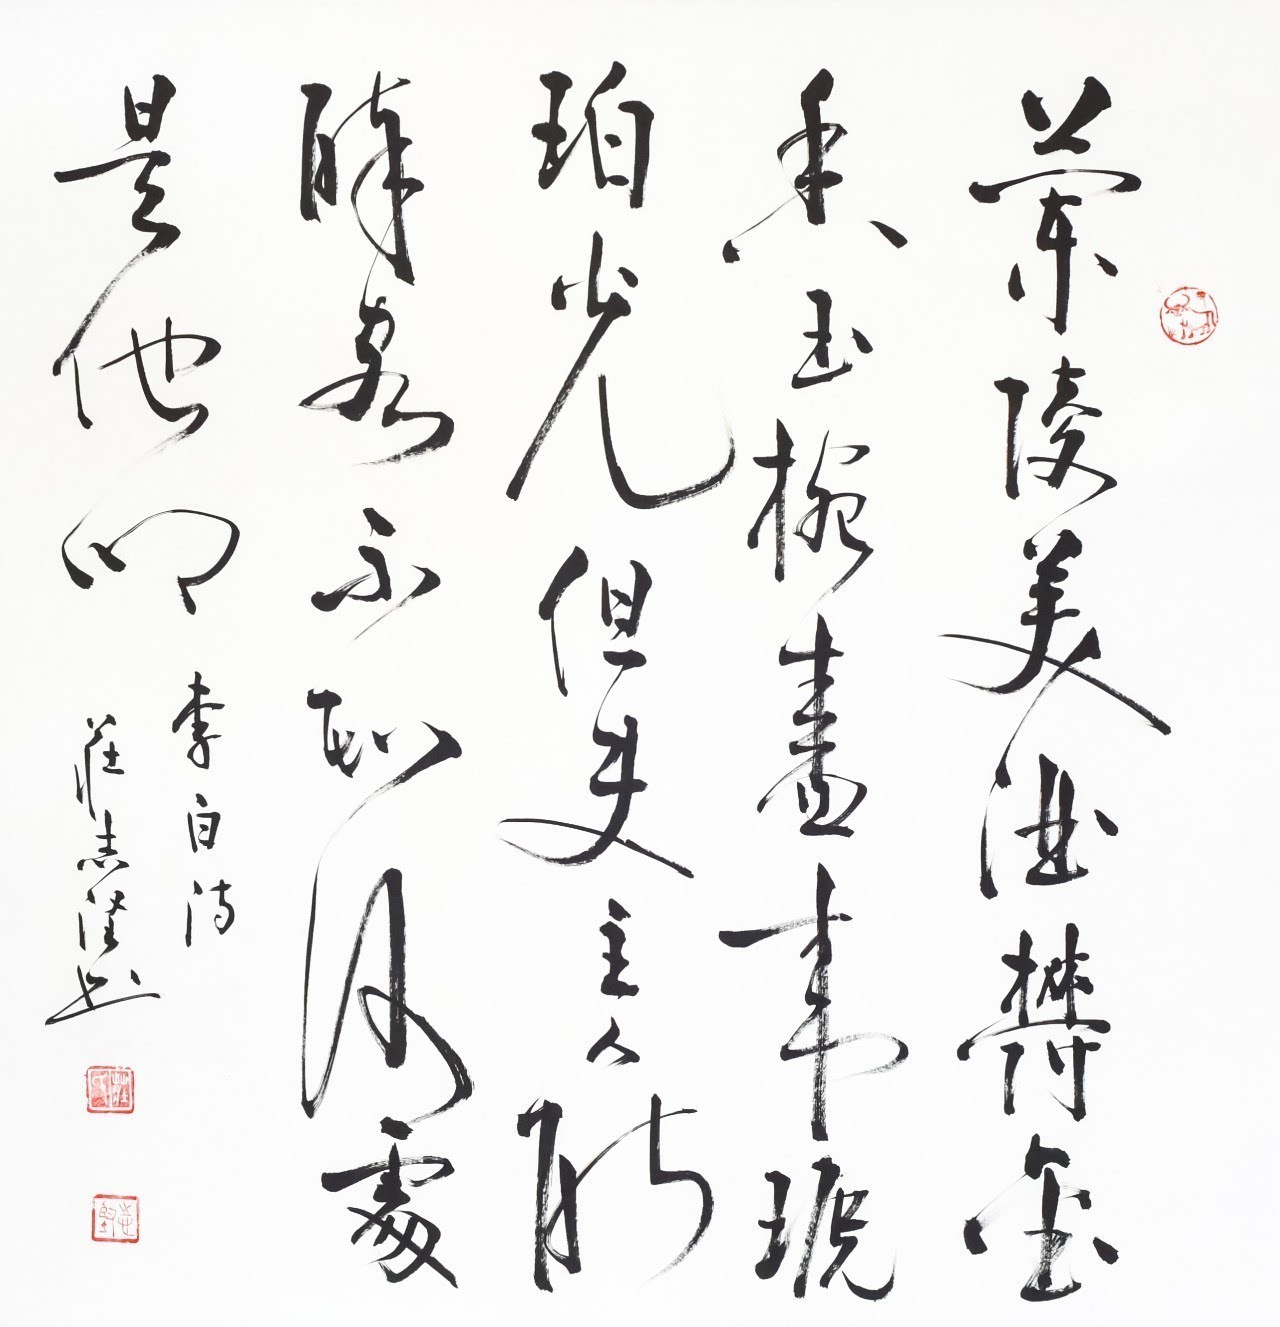 蘭陵美酒欝金
香玉椀盛来琥
珀光但使主人能
醉客不知何處
是他鄉
李白詩
莊志書